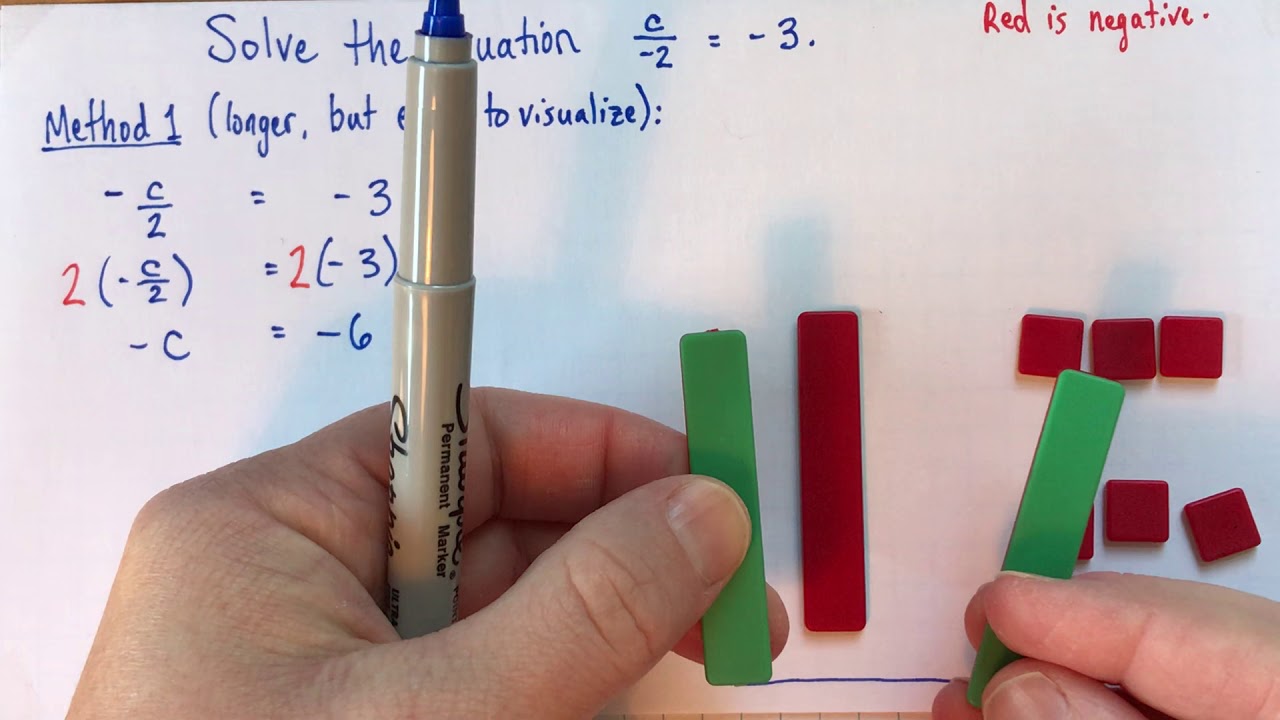 Solve the uation c/-2 = -3.
Red is negative.
Method 1 (longer, but to visualize):
- c/2 = -3
2(- c/2) = 2(-3)
-c = -6
Permanent Marker